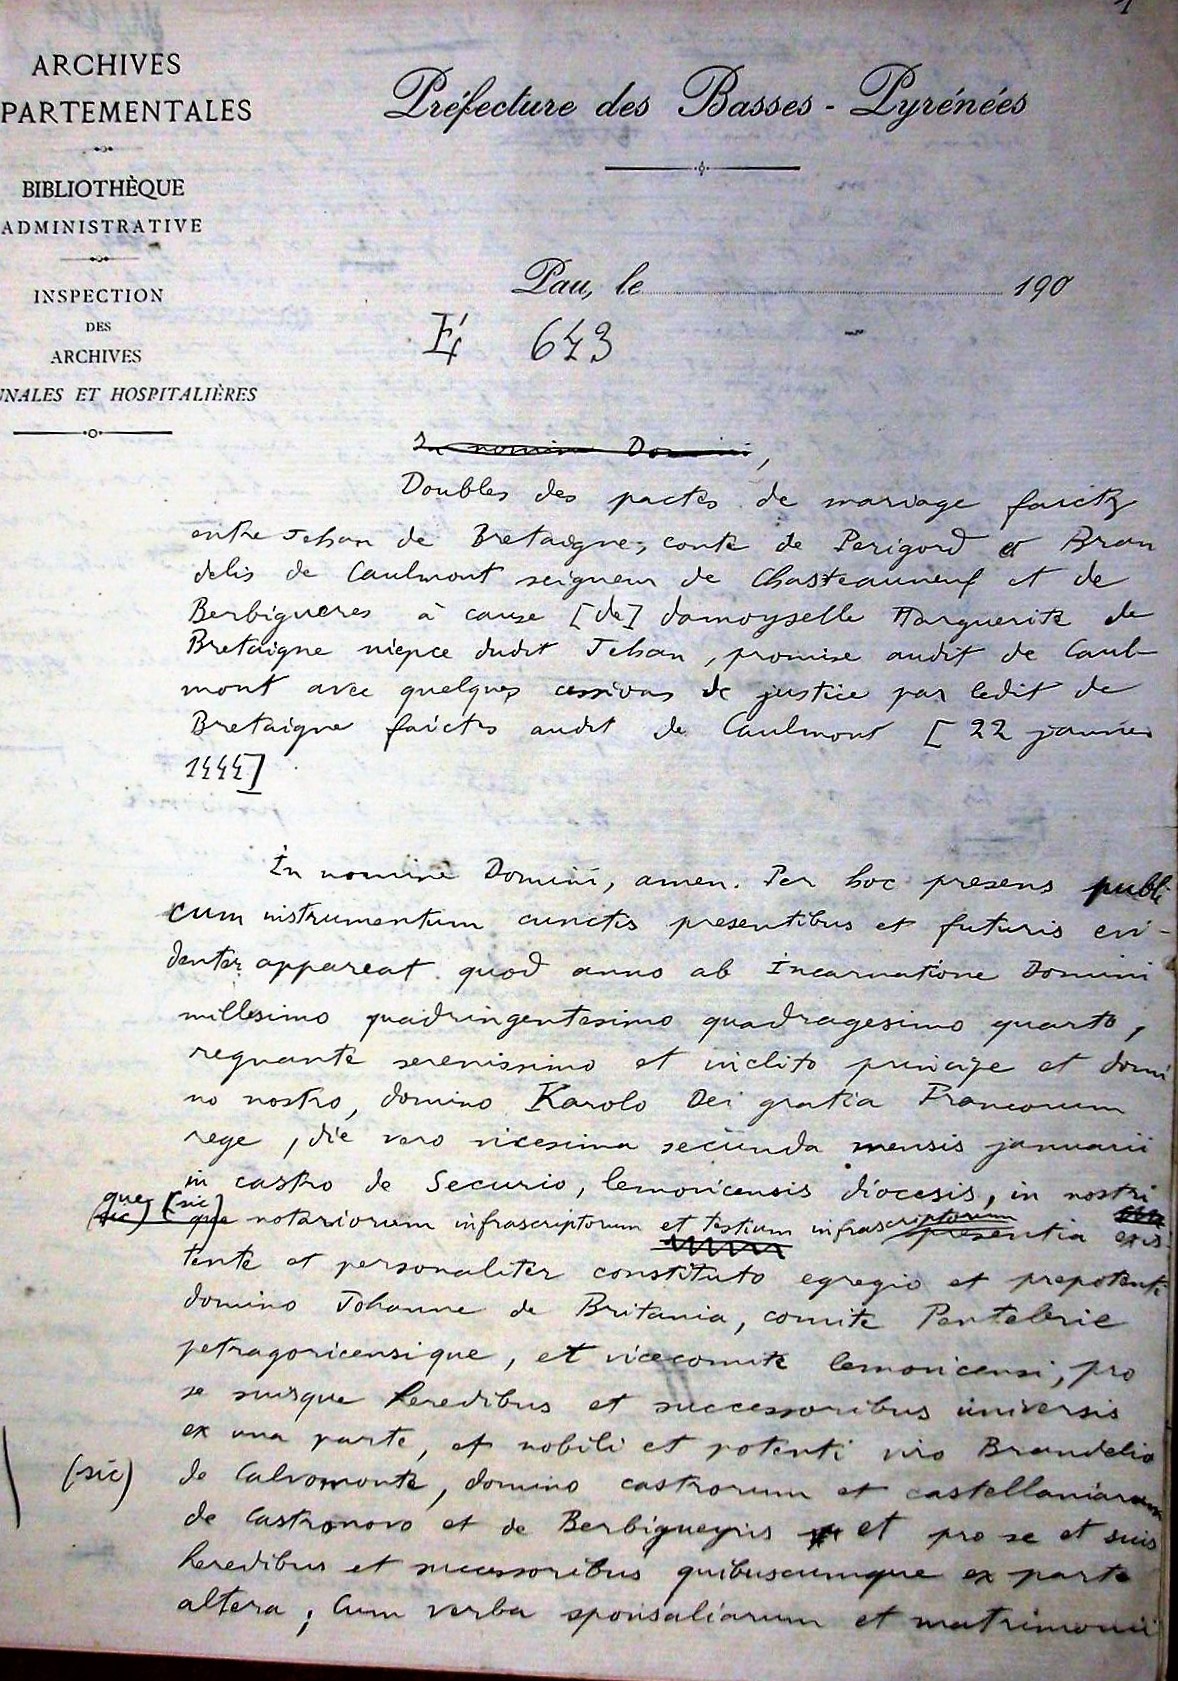 1
ARCHIVES
PARTEMENTALES
BIBLIOTHÈQUE
ADMINISTRATIVE
INSPECTION
DES
ARCHIVES
NALES ET HOSPITALIÈRES
Préfecture des Basses-Pyrénées
Pau, le 190
E 643
In nomine Domini,
Doubles des pactes de mariage faictz
entre Jehan de Bretaigne, conte de Perigord et Bran
delis de Caulmont seigneur de Chasteauneuf et de
Berbigueres à cause [de] damoyselle Marguerite de
Bretaigne niepce dudit Jehan, promise audit de Caul-
mont avec quelques cessions de justice par ledit de
Bretaigne faictes audit de Caulmont [22 janvier
1444]
In nomine Domini, amen. Per hoc presens publi
cum instrumentum cunctis presentibus et futuris evi-
denter appareat quod anno ab Incarnatione Domini
millesimo quadringentesimo quadragesimo quarto,
regnante serenissimo et inclito principe et domi
no nostro, domino Karolo Dei gratia Francorum
rege, die vero vicesima secunda mensis januarii
in castro de Securio, lemovicensis diocesis, in nostri
que (sic)
que notariorum infrascriptorum et testium infrascriptorum presentia exis
tente et personaliter constituto egregio et prepotenti
domino Johanne de Britania, comite Penteberie
petragoricensique, et vicecomite lemovicensi, pro
se suisque heredibus et successoribus universis
ex una parte, et nobili et potenti viro Brandelio
(sic) de Calvomonte, domino castrorum et castellaniarum
de Castronovo et de Berbigueyris et pro se et suis
heredibus et successoribus quibuscumque ex parte
altera; Cum verba sponsaliarum et matrimonii